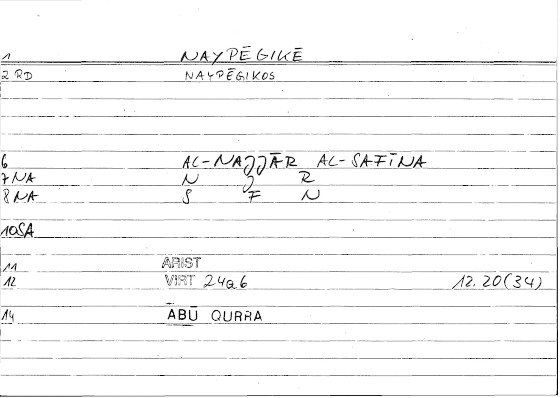 1 NAYPĒGIKĒ
2 RD NAYPĒGIKOS
6 AL-NAJJĀR AL-SAFĪNA
7 NA N J R
8 NA S F N
10SA
11 ARIST
12 VIRT 24a6 12.20(34)
14 ABŪ QURRA